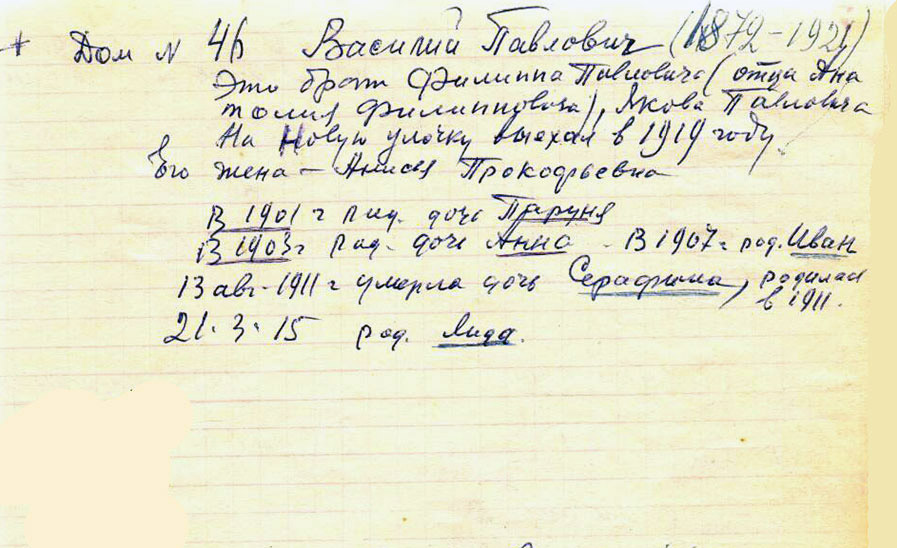 + Дом N 46 Василий Павлович (1872-1921)
Это брат Филиппа Павловича (отца Ана
толия Филипповича), Якова Павловича
На Новую улочку выехал в 1919 году.
Его жена - Анисья Прокофьевна
В 1901 г род. дочь Паруня
В 1903 г род. дочь Анна - В 1907 г род. Иван
13 авг. 1911 г умерла дочь Серафима, родилась
в 1911.
21.3.15 род. Лида.